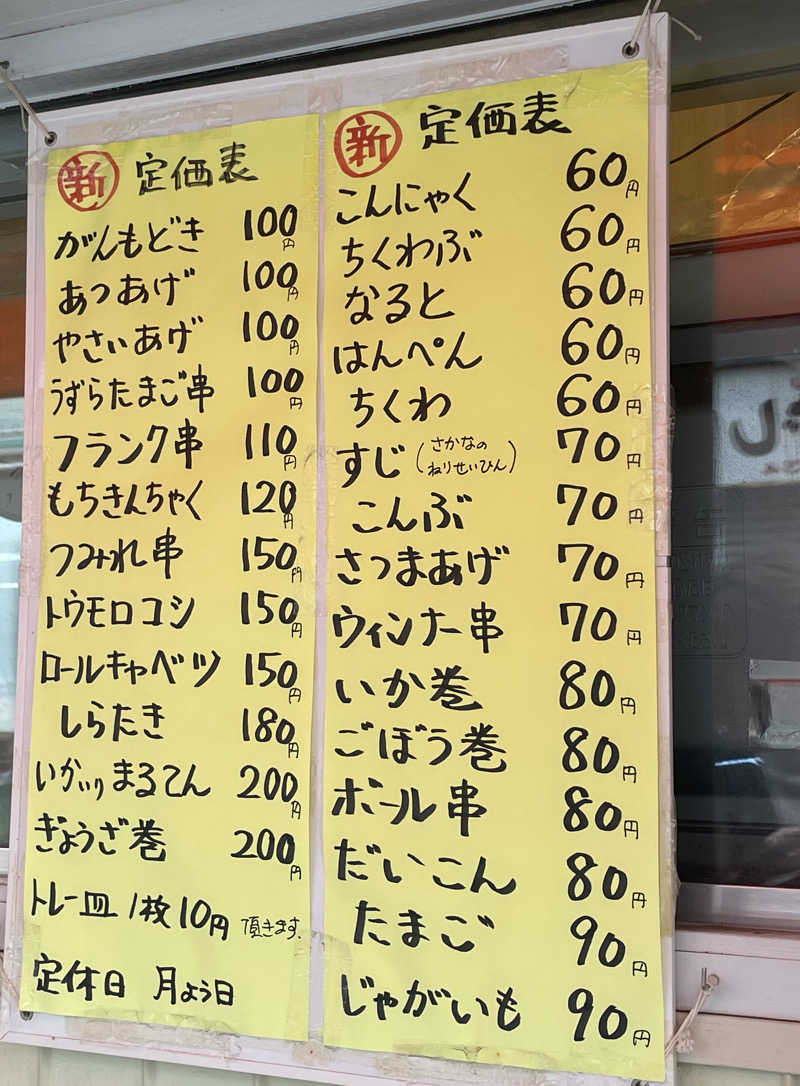 新 定価表
こんにゃく 60円
ちくわぶ 60円
なると 60円
はんぺん 60円
ちくわ 60円
すじ(さかなのねりせいひん) 70円
こんぶ 70円
さつまあげ 70円
ウィンナー串 70円
いか巻 80円
ごぼう巻 80円
ボール串 80円
だいこん 80円
たまご 90円
じゃがいも 90円
新 定価表
がんもどき 100円
あつあげ 100円
やさいあげ 100円
うずらたまご串 100円
フランク串 110円
もちきんちゃく 120円
つみれ串 150円
トウモロコシ 150円
ロールキャベツ 150円
しらたき 180円
いか入りまるてん 200円
ぎょうざ巻 200円
トレー皿 1枚10円 頂きます。
定休日 月よう日